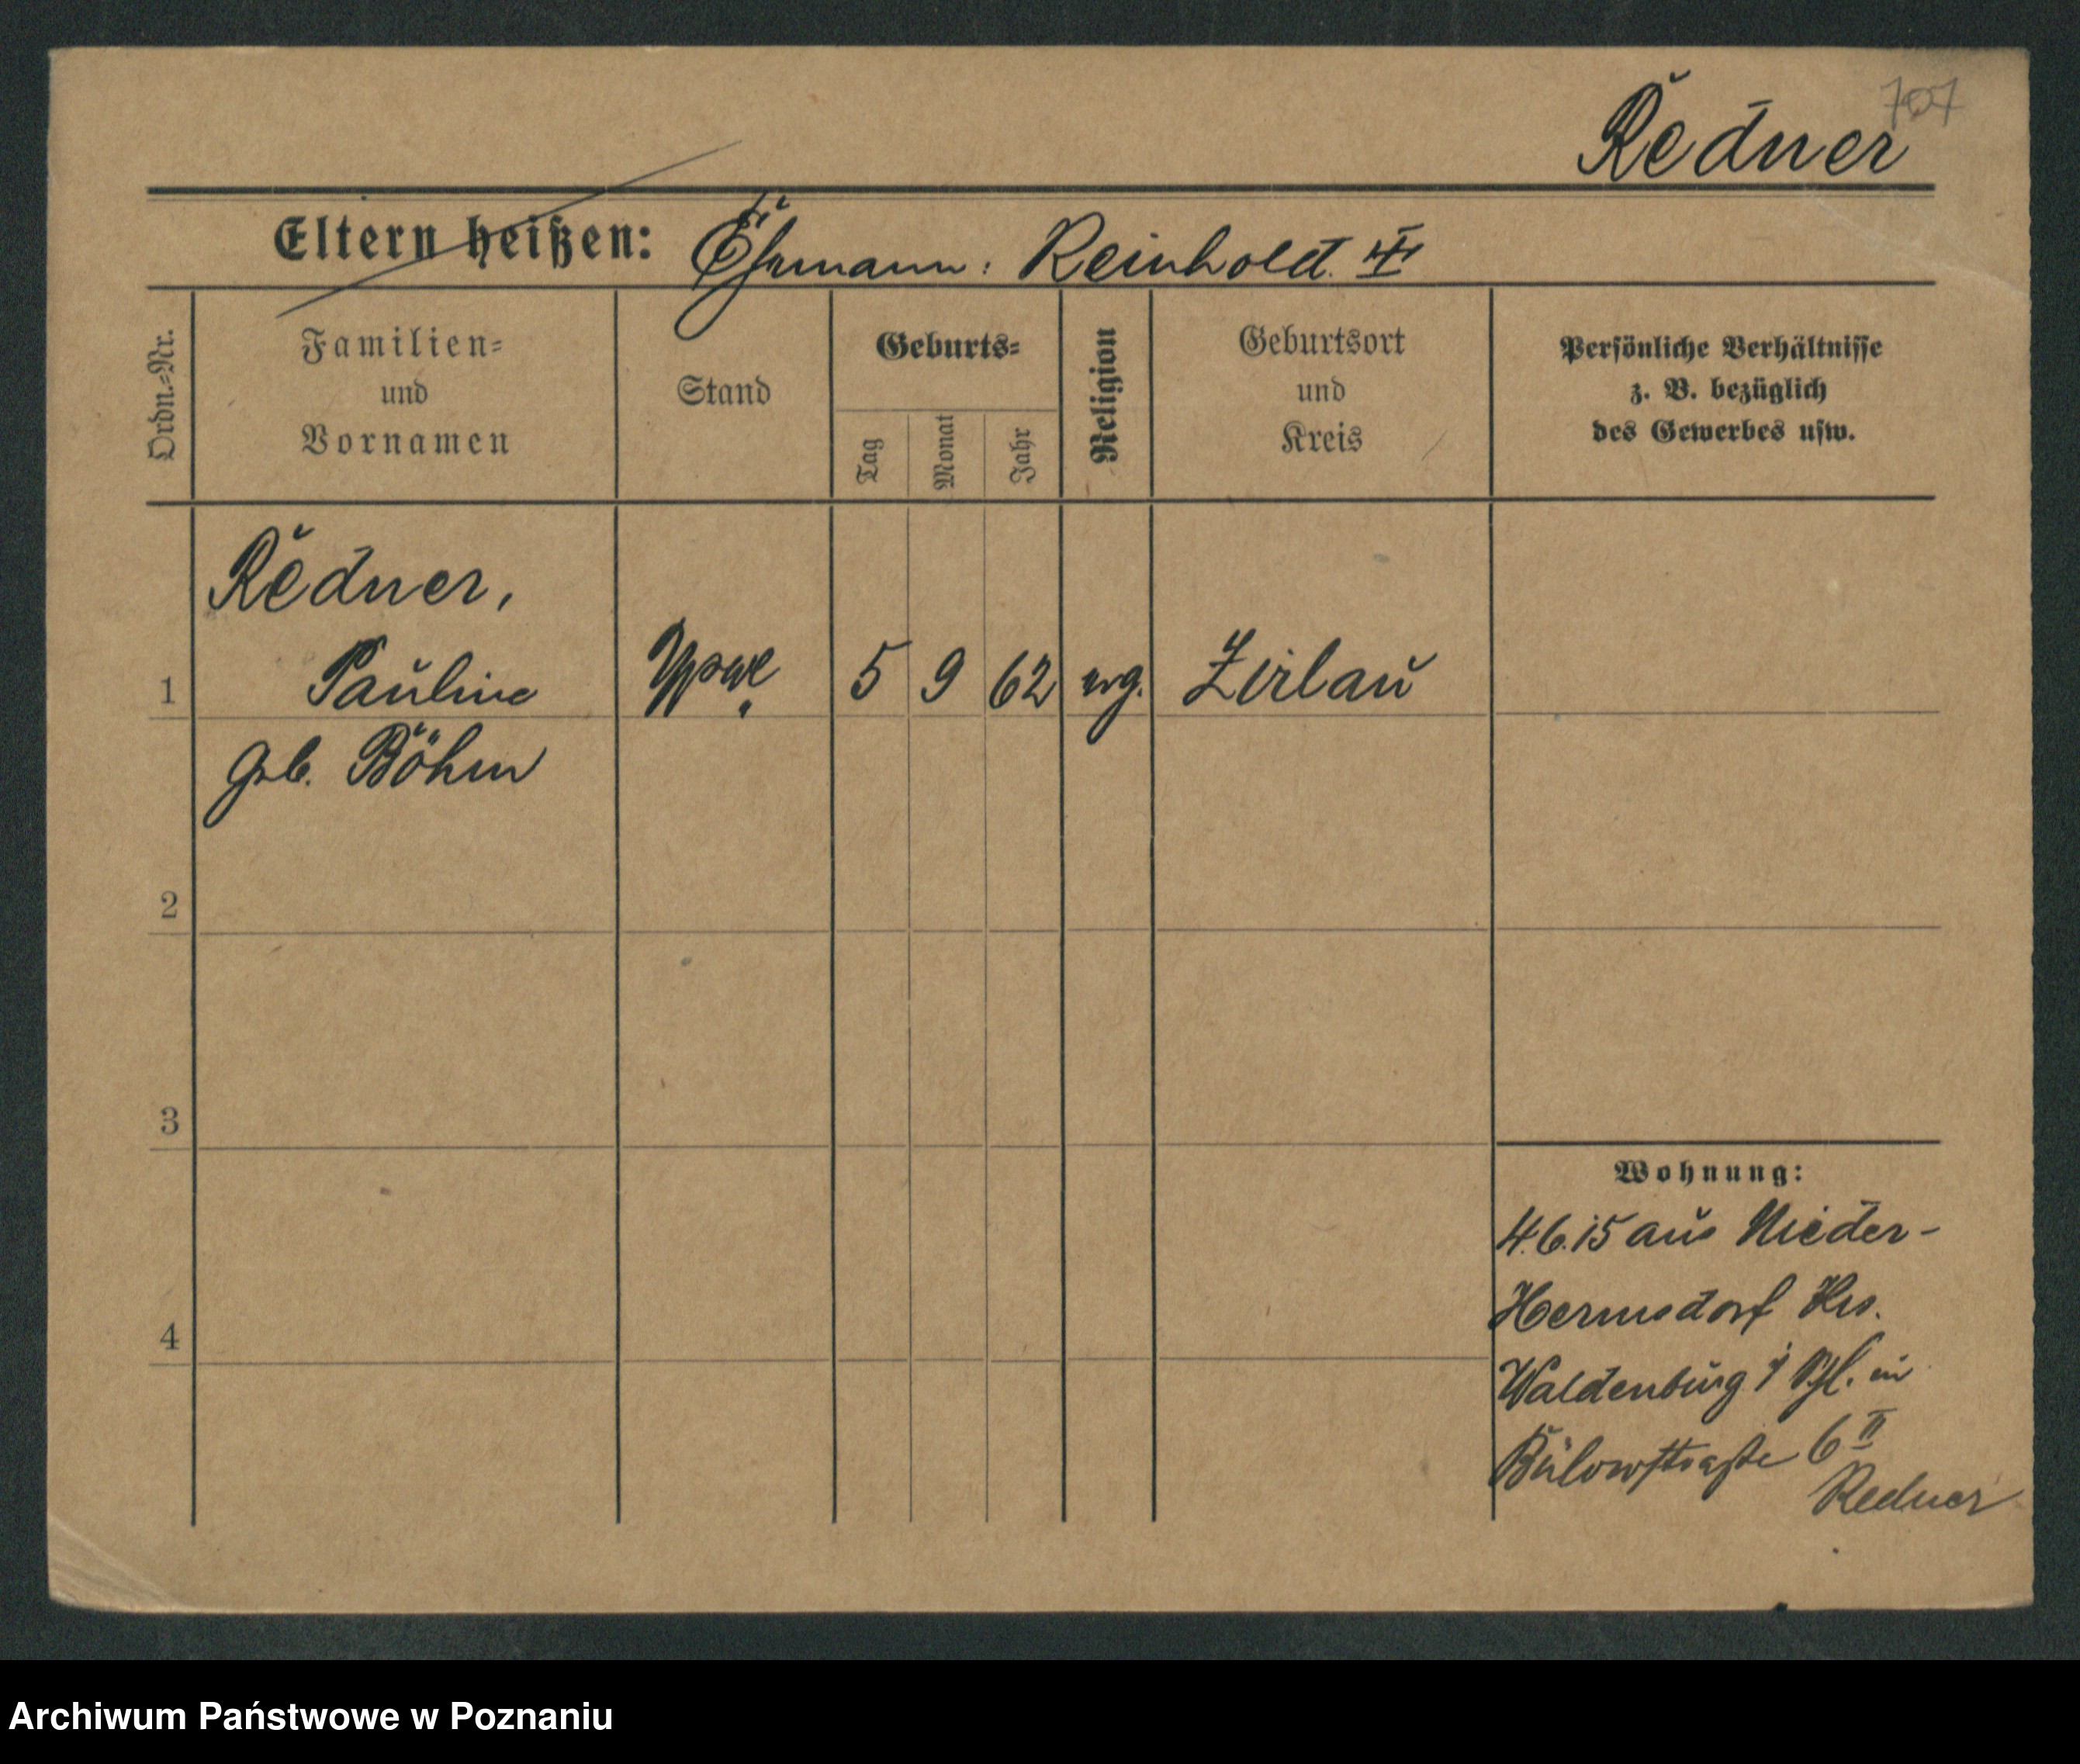 707
Redner
Eltern heißen: Ehemann: Reinhold
Ordn.=Nr.
Familien=
und
Vornamen
Stand
Geburts=
Tag
Monat
Jahr
Religion
Geburtsort
und
Kreis
Persönliche Verhältnisse
z. B. bezüglich
des Gewerbes usw.
Redner,
1 Pauline 5 9 62 evg. Zirlau
geb. Böhm
2
3
4
Wohnung:
4.6.15 aus Nieder-
Hermsdorf Krs.
Waldenburg i Schl. in
Bülowstraße 6 II
Redner
Archiwum Państwowe w Poznaniu